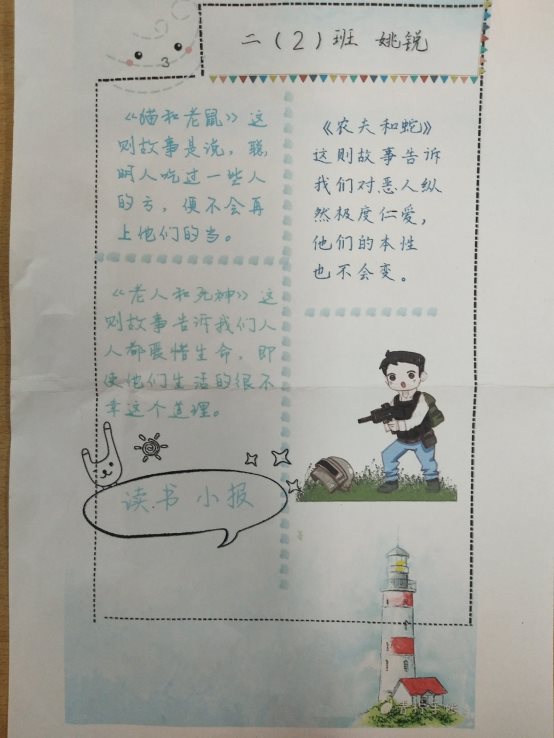 3
二（2）班 姚锐
《猫和老鼠》这
则故事是说，聪
明人吃过一些人
的亏，便不会再
上他们的当。
《农夫和蛇》
这则故事告诉
我们对恶人纵
然极度仁爱，
他们的本性
也不会变。
《老人和死神》这
则故事告诉我们人
人都爱惜生命，即
使他们生活的很不
幸这个道理。
读书小报